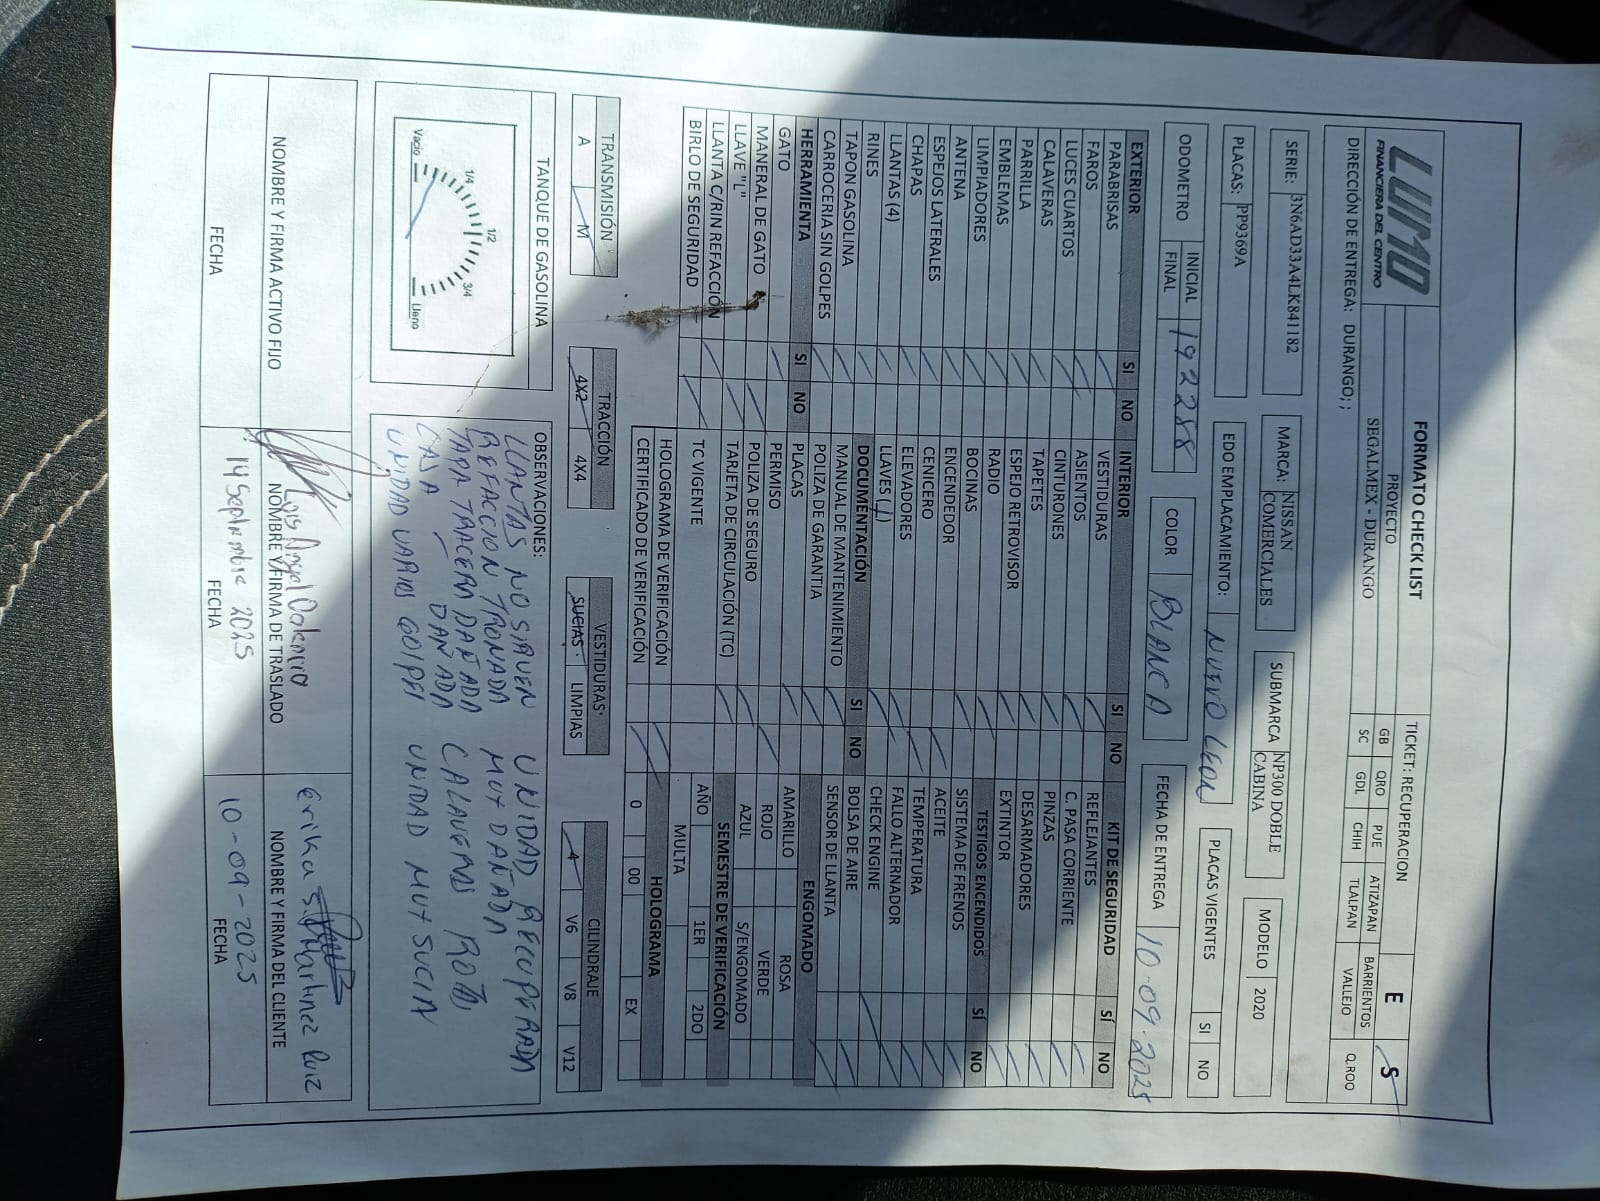 LUMO
FINANCIERA DEL CENTRO
FORMATO CHECK LIST
PROYECTO
SEGALMEX - DURANGO
TICKET: RECUPERACION
E S
GB QRO PUE ATIZAPAN BARRIENTOS Q.ROO
SC GDL CHIH TLALPAN VALLEJO
DIRECCIÓN DE ENTREGA: DURANGO; ;
SERIE: 3N6AD33A4LK841182 MARCA: NISSAN COMERCIALES SUBMARCA NP300 DOBLE CABINA MODELO 2020
PLACAS: PP9369A EDO EMPLACAMIENTO: NUEVO LEON PLACAS VIGENTES SI NO
ODOMETRO INICIAL FINAL 192288 COLOR BLANCA FECHA DE ENTREGA 10-09-2025
EXTERIOR SI NO INTERIOR SI NO KIT DE SEGURIDAD SÍ NO
PARABRISAS VESTIDURAS REFLEJANTES
FAROS ASIENTOS C. PASA CORRIENTE
LUCES CUARTOS CINTURONES PINZAS
CALAVERAS TAPETES DESARMADORES
PARRILLA ESPEJO RETROVISOR EXTINTOR
EMBLEMAS RADIO TESTIGOS ENCENDIDOS SÍ NO
LIMPIADORES BOCINAS SISTEMA DE FRENOS
ANTENA ENCENDEDOR ACEITE
ESPEJOS LATERALES CENICERO TEMPERATURA
CHAPAS ELEVADORES FALLO ALTERNADOR
LLANTAS (4) LLAVES (1) CHECK ENGINE
RINES DOCUMENTACIÓN SI NO BOLSA DE AIRE
TAPON GASOLINA MANUAL DE MANTENIMIENTO SENSOR DE LLANTA
CARROCERIA SIN GOLPES POLIZA DE GARANTIA ENGOMADO
HERRAMIENTA SI NO PLACAS AMARILLO ROSA
GATO PERMISO ROJO VERDE
MANERAL DE GATO POLIZA DE SEGURO AZUL S/ENGOMADO
LLAVE "L" TARJETA DE CIRCULACIÓN (TC) SEMESTRE DE VERIFICACIÓN
LLANTA C/RIN REFACCIÓN TC VIGENTE AÑO 1ER 2DO
BIRLO DE SEGURIDAD MULTA
HOLOGRAMA DE VERIFICACIÓN HOLOGRAMA
CERTIFICADO DE VERIFICACIÓN 0 00 EX
TRANSMISIÓN TRACCIÓN VESTIDURAS CILINDRAJE
A M 4X2 4X4 SUCIAS LIMPIAS 4 V6 V8 V12
TANQUE DE GASOLINA
Vacio 1/4 1/2 3/4 Lleno
OBSERVACIONES: UNIDAD RECUPERADA
LLANTAS NO SIRVEN MUY DAÑADA
REFACCION TRONADA CALAVERAS ROTAS
TAPA TRACERA DAÑADA UNIDAD MUY SUCIA
CAJA / DAÑADA
UNIDAD VARIOS GOLPES
Luis Angel
Erika S. Martinez Ruiz
NOMBRE Y FIRMA ACTIVO FIJO NOMBRE Y FIRMA DE TRASLADO NOMBRE Y FIRMA DEL CLIENTE
14 Septiembre 2025 10-09-2025
FECHA FECHA FECHA